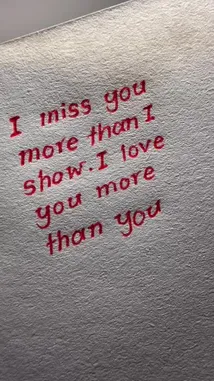 I miss you
more than I
show. I love
you more
than you